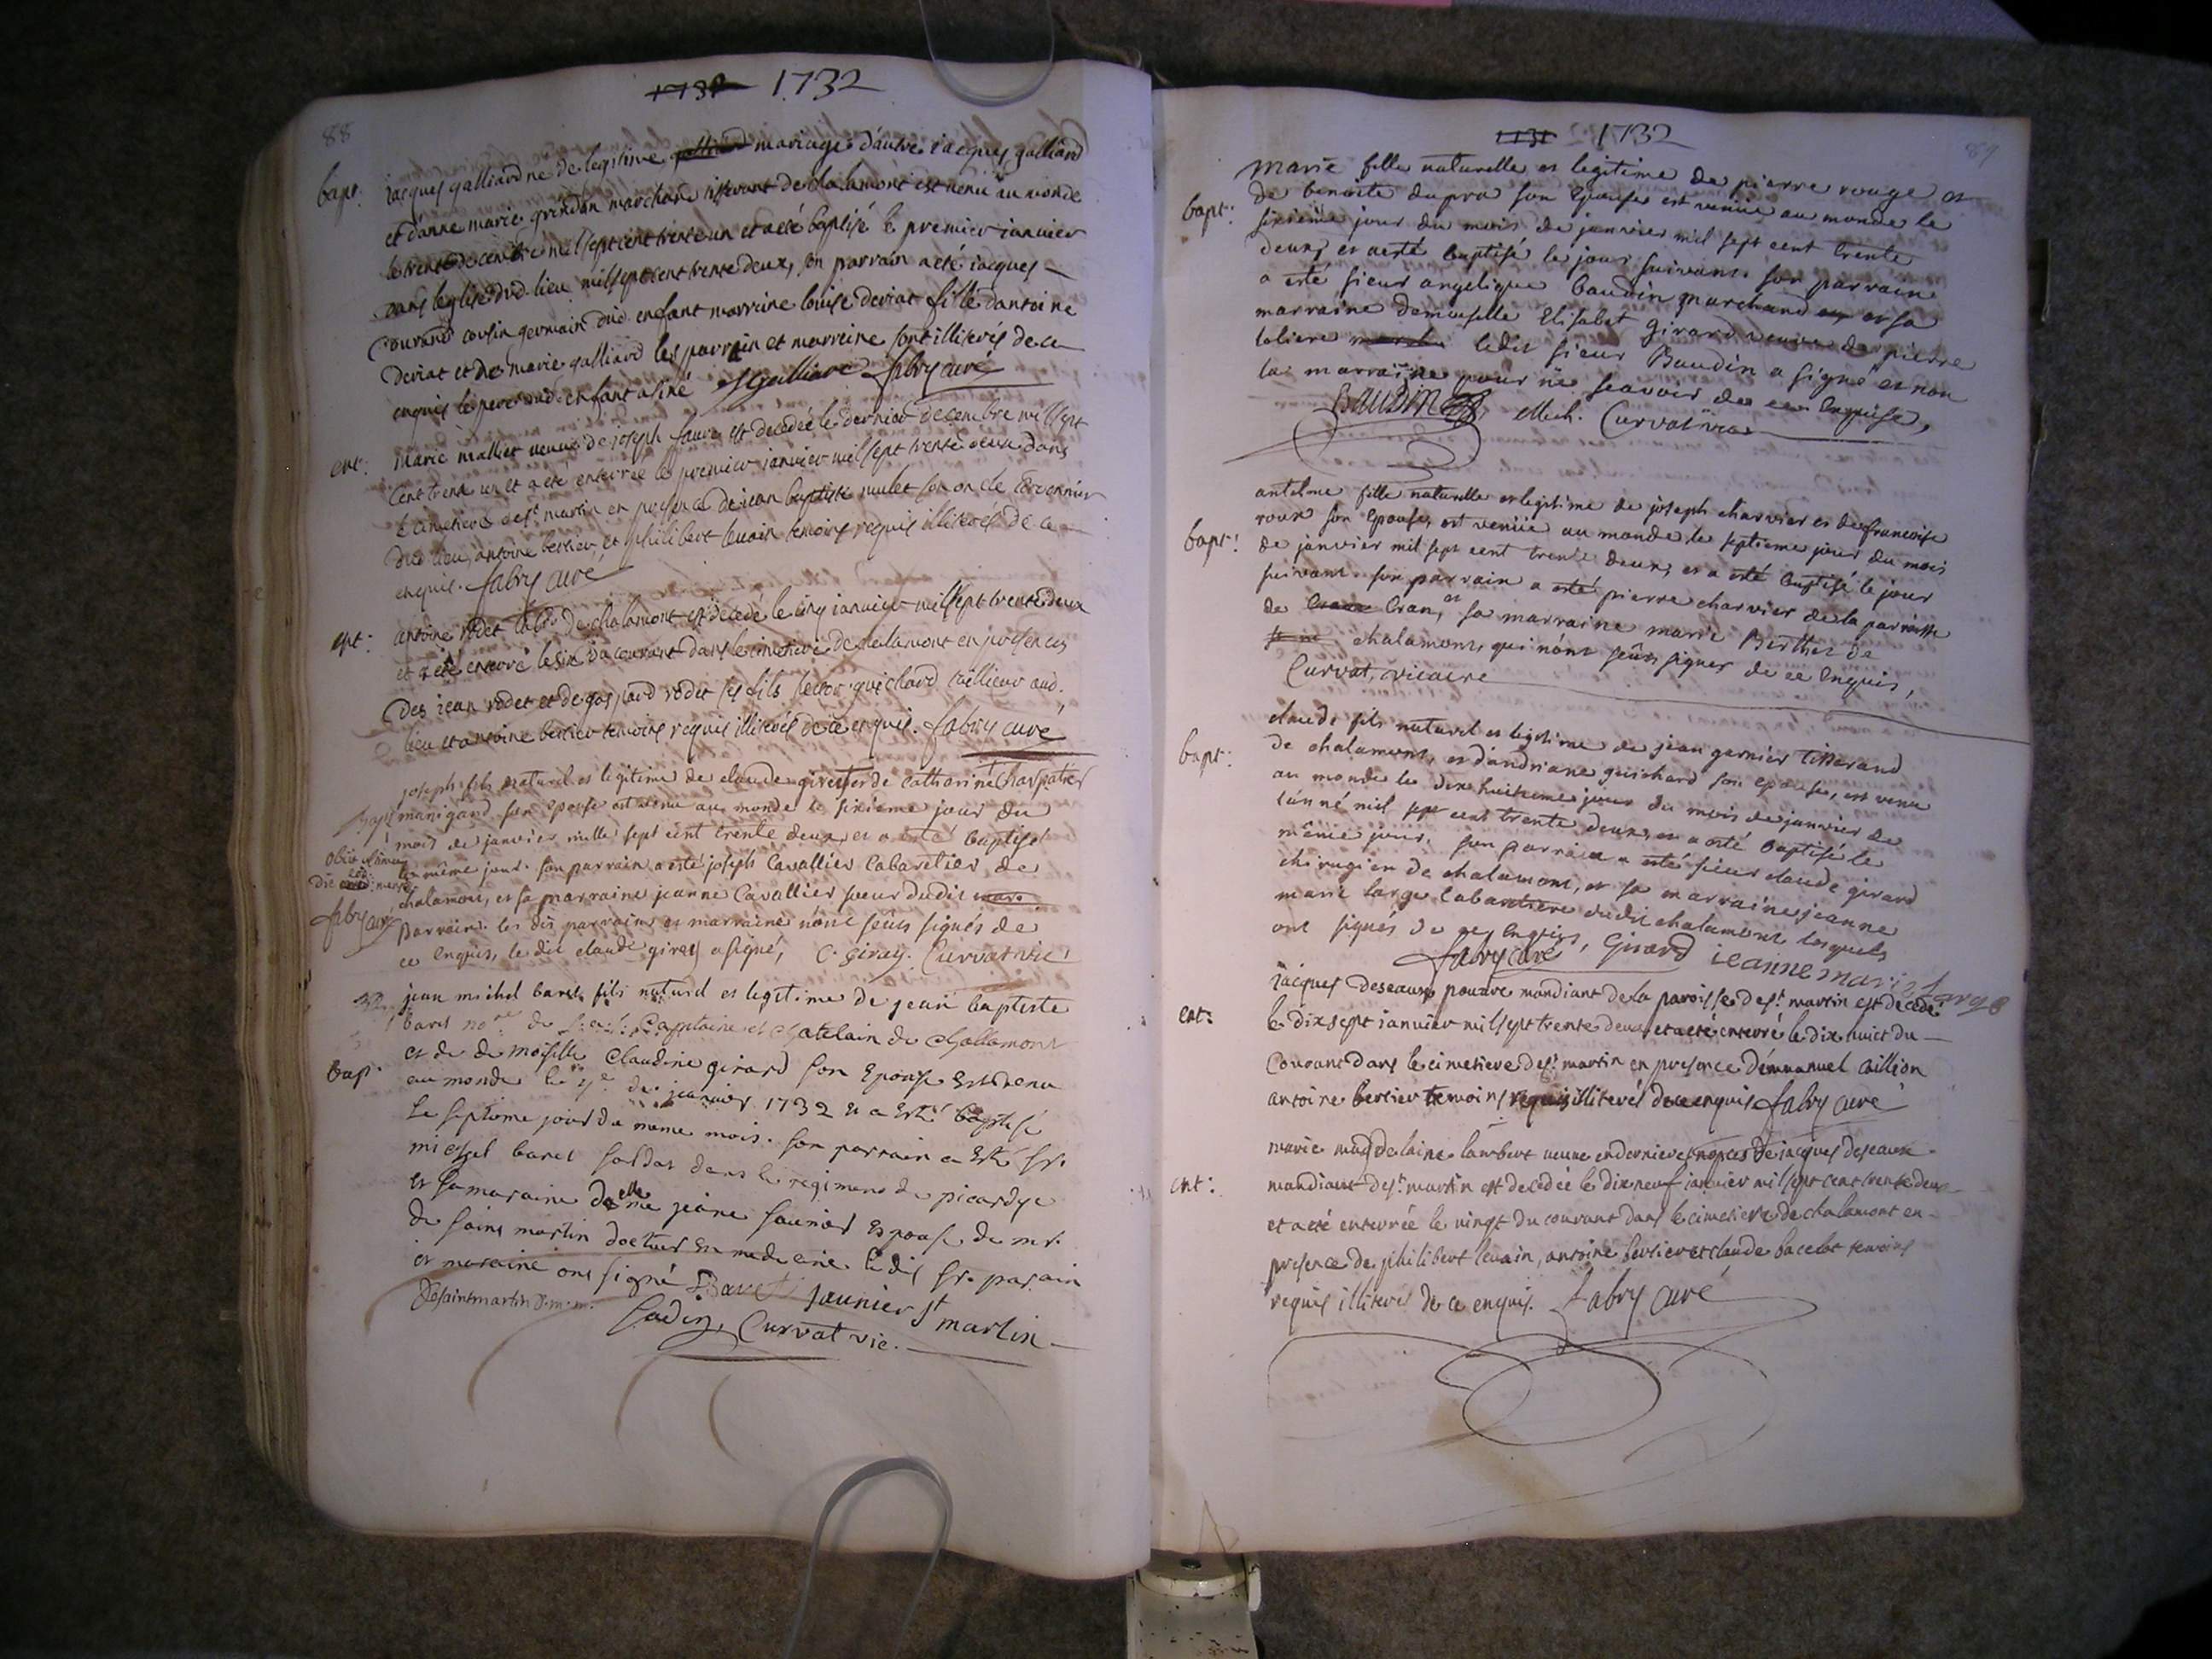 1732
88
bapt: jacques galliard né de legitime mariage d'autre jacques galliard
et d'anne marie grindon marchand residant de chalamont est venu au monde
le trente decembre mil sept cent trente un et a eté baptisé le premier janvier
dans leglise dud. lieu mil sept cent trente deux, son parrain a eté jacques
Couvrand cousin germain dud. enfant marraine louise deviat fille dantoine
deviat et de marie galliard les parrain et marraine sont illiterés de ce
enquis le pere dud. enfant a siné Galliard fabry curé
ent: marie malliet veuve de joseph faure est decedée le dernier decembre mil sept
cent trente un et a eté enterrée le premier janvier mil sept trente deux dans
le cimetiere de st martin en presence de jean baptiste mulet son oncle
dud. lieu, antoine bertier, et philibert levain temoins requis illiterés de ce
enquis. fabry curé
ent: antoine rodet de chalamont est decedé le cinq janvier mil sept trente deux
et a eté enterré le six du courant dans le cimetiere de chalamont en presences
des jean rodet et de gaspard rodet ses fils guichard tailleur aud.
lieu et antoine bertier temoins requis illiterés de ce enquis. fabry curé
joseph fils naturel et legitime de claude girey et de catharine charpatier
bapt manigand son epouse est venu au monde le sixième jour du
mois de janvier mille sept cent trente deux, et a esté baptisé
le même jour. son parrain a esté joseph Cavallier Cabaretier de
chalamont, et sa marraine jeanne Cavallier soeur dudit
parrain. les dis parrains et marraine n'ont seus signés de
ce enquis, le dit claude girey a signé, C. Girey. Curvat vic.
fabry curé
jean michel baret fils naturel et legitime de jean baptiste
baret no.re Capitaine et chatelain de Challamont
bap. et de demoiselle Claudine girard son Epouse Est venu
au monde le de janvier 1732 et a Esté baptisé
Le septieme jour du meme mois. son parrain a Esté sr.
michel baret soldat dans le regiment de picardye
et sa maraine delle jeane saunier Espouse de mr.
de saint martin docteur en medecine. le dit sr. parain
et maraine ont signé Baret saunier st martin
Desaintmartin D. m. m. Curvat vic.
1732
89
marie fille naturelle et legitime de pierre rouge et
bapt: de benoite dupra son Epouse est venüe au monde le
sixième jour du mois de janvier mil sept cent trente
deux, et a esté baptisé le jour suivant. son parrain
a esté sieur angelique baudin marchand et sa
marraine demoiselle Elisabet Girard veuve de pierre
toliere ledit sieur Baudin a signé et non
la marraine pour ne scavoir de ce enquise,
BAUDIN Mich. Curvat vic.
antelme fille naturelle et legitime de joseph charvier et de francoise
roux son Epouse, est venüe au monde le septieme jour du mois
bapt: de janvier mil sept cent trente deux, et a esté baptisé le jour
suivant. son parrain a esté pierre charvier de la parroisse
de Cran, et sa marraine marie Berthet de
chalamont, qui n'ont seus signer de ce enquis,
Curvat, vicaire
claude fils naturel et legitime de jean garnier tisserand
bapt: de chalamont, et d'andriane guichard son epouse, est venu
au monde le dix huitieme jour du mois de janvier de
l'anné mil sept cent trente deux, et a esté baptisé le
même jour. son parrain a esté sieur claude girard
chirugien de chalamont, et sa marraine jeanne
marie large Cabaretiere dudit chalamont lesquels
ont signés de ce enquis, Girard jeanne marie Large
fabry curé
jacques deseaux pauvre mandiant de la paroisse de st. martin est decedé
ent: le dix sept janvier mil sept trente deux et a eté enterré le dix huict du
Courant dans le cimetiere de st. martin en presence d'emmanuel caillion
antoine bertier temoins requis illiterés de ce enquis fabry curé
marie magdelaine lambert veuve en derniere nopces de jacques deseaux
ent: mandiant de st. martin est decedée le dix neuf janvier mil sept cent trente deux
et a eté enterrée le vingt du courant dans le cimetiere de chalamont en
presence de philibert levain, antoine bertier et claude bacelot temoins
requis illiterés de ce enquis. fabry curé